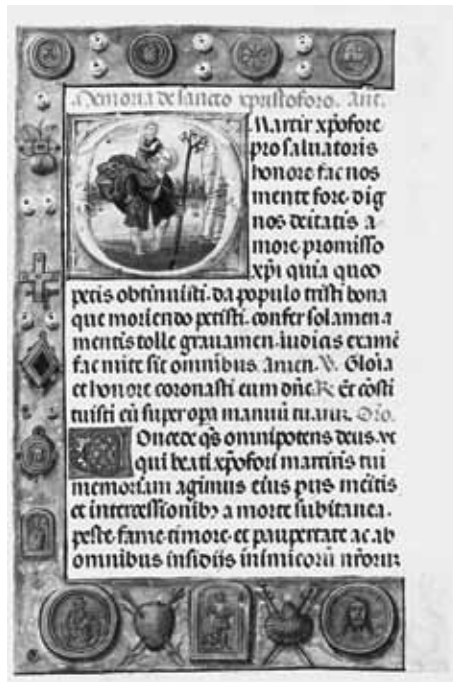 Memoria de sancto xpristoforo. Ant.
O Martir xp̄ofore
pro saluatoris
honore fac nos
mente fore. dig
nos deitatis a-
more promisso
xp̄i quia quod
petis obtinuisti. da populo tristi bona
que moriendo petisti. confer solamen ⁊
mentis tolle grauamen. iudicis examē
fac mite sit omnibus. amen. V. Gloīa
et honore coronasti eum dn̄e. R. Et cōsti
tuisti eū super opa manuū tuarum. Oro.
Concede q̄s omnipotens deus. vt
qui beati xp̄ofori martiris tui
memoriam agimus eius piis mēitis
et intercessionibꝫ a morte subitanea.
peste. fame. timore. et paupertate ac ab
omnibus insidiis inimicorū nr̄orum